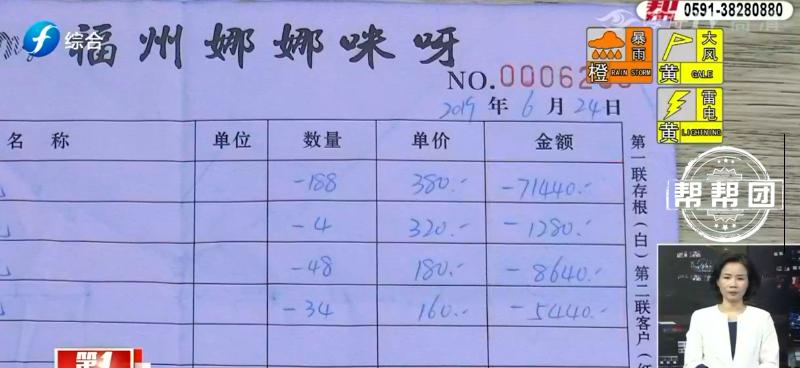 帮 0591-38280880
综合
福州娜娜咪呀
暴雨
橙 RAIN STORM
大风
黄 GALE
雷电
黄 LIGHTNING
NO.00062
2019年6月24日
名称 单位 数量 单价 金额
-188 380.- -71440.-
-4 320.- -1280.-
-48 180.- -8640.-
-34 160.- -5440.-
第一联存根(白) 第二联客户(红
帮帮团
第1